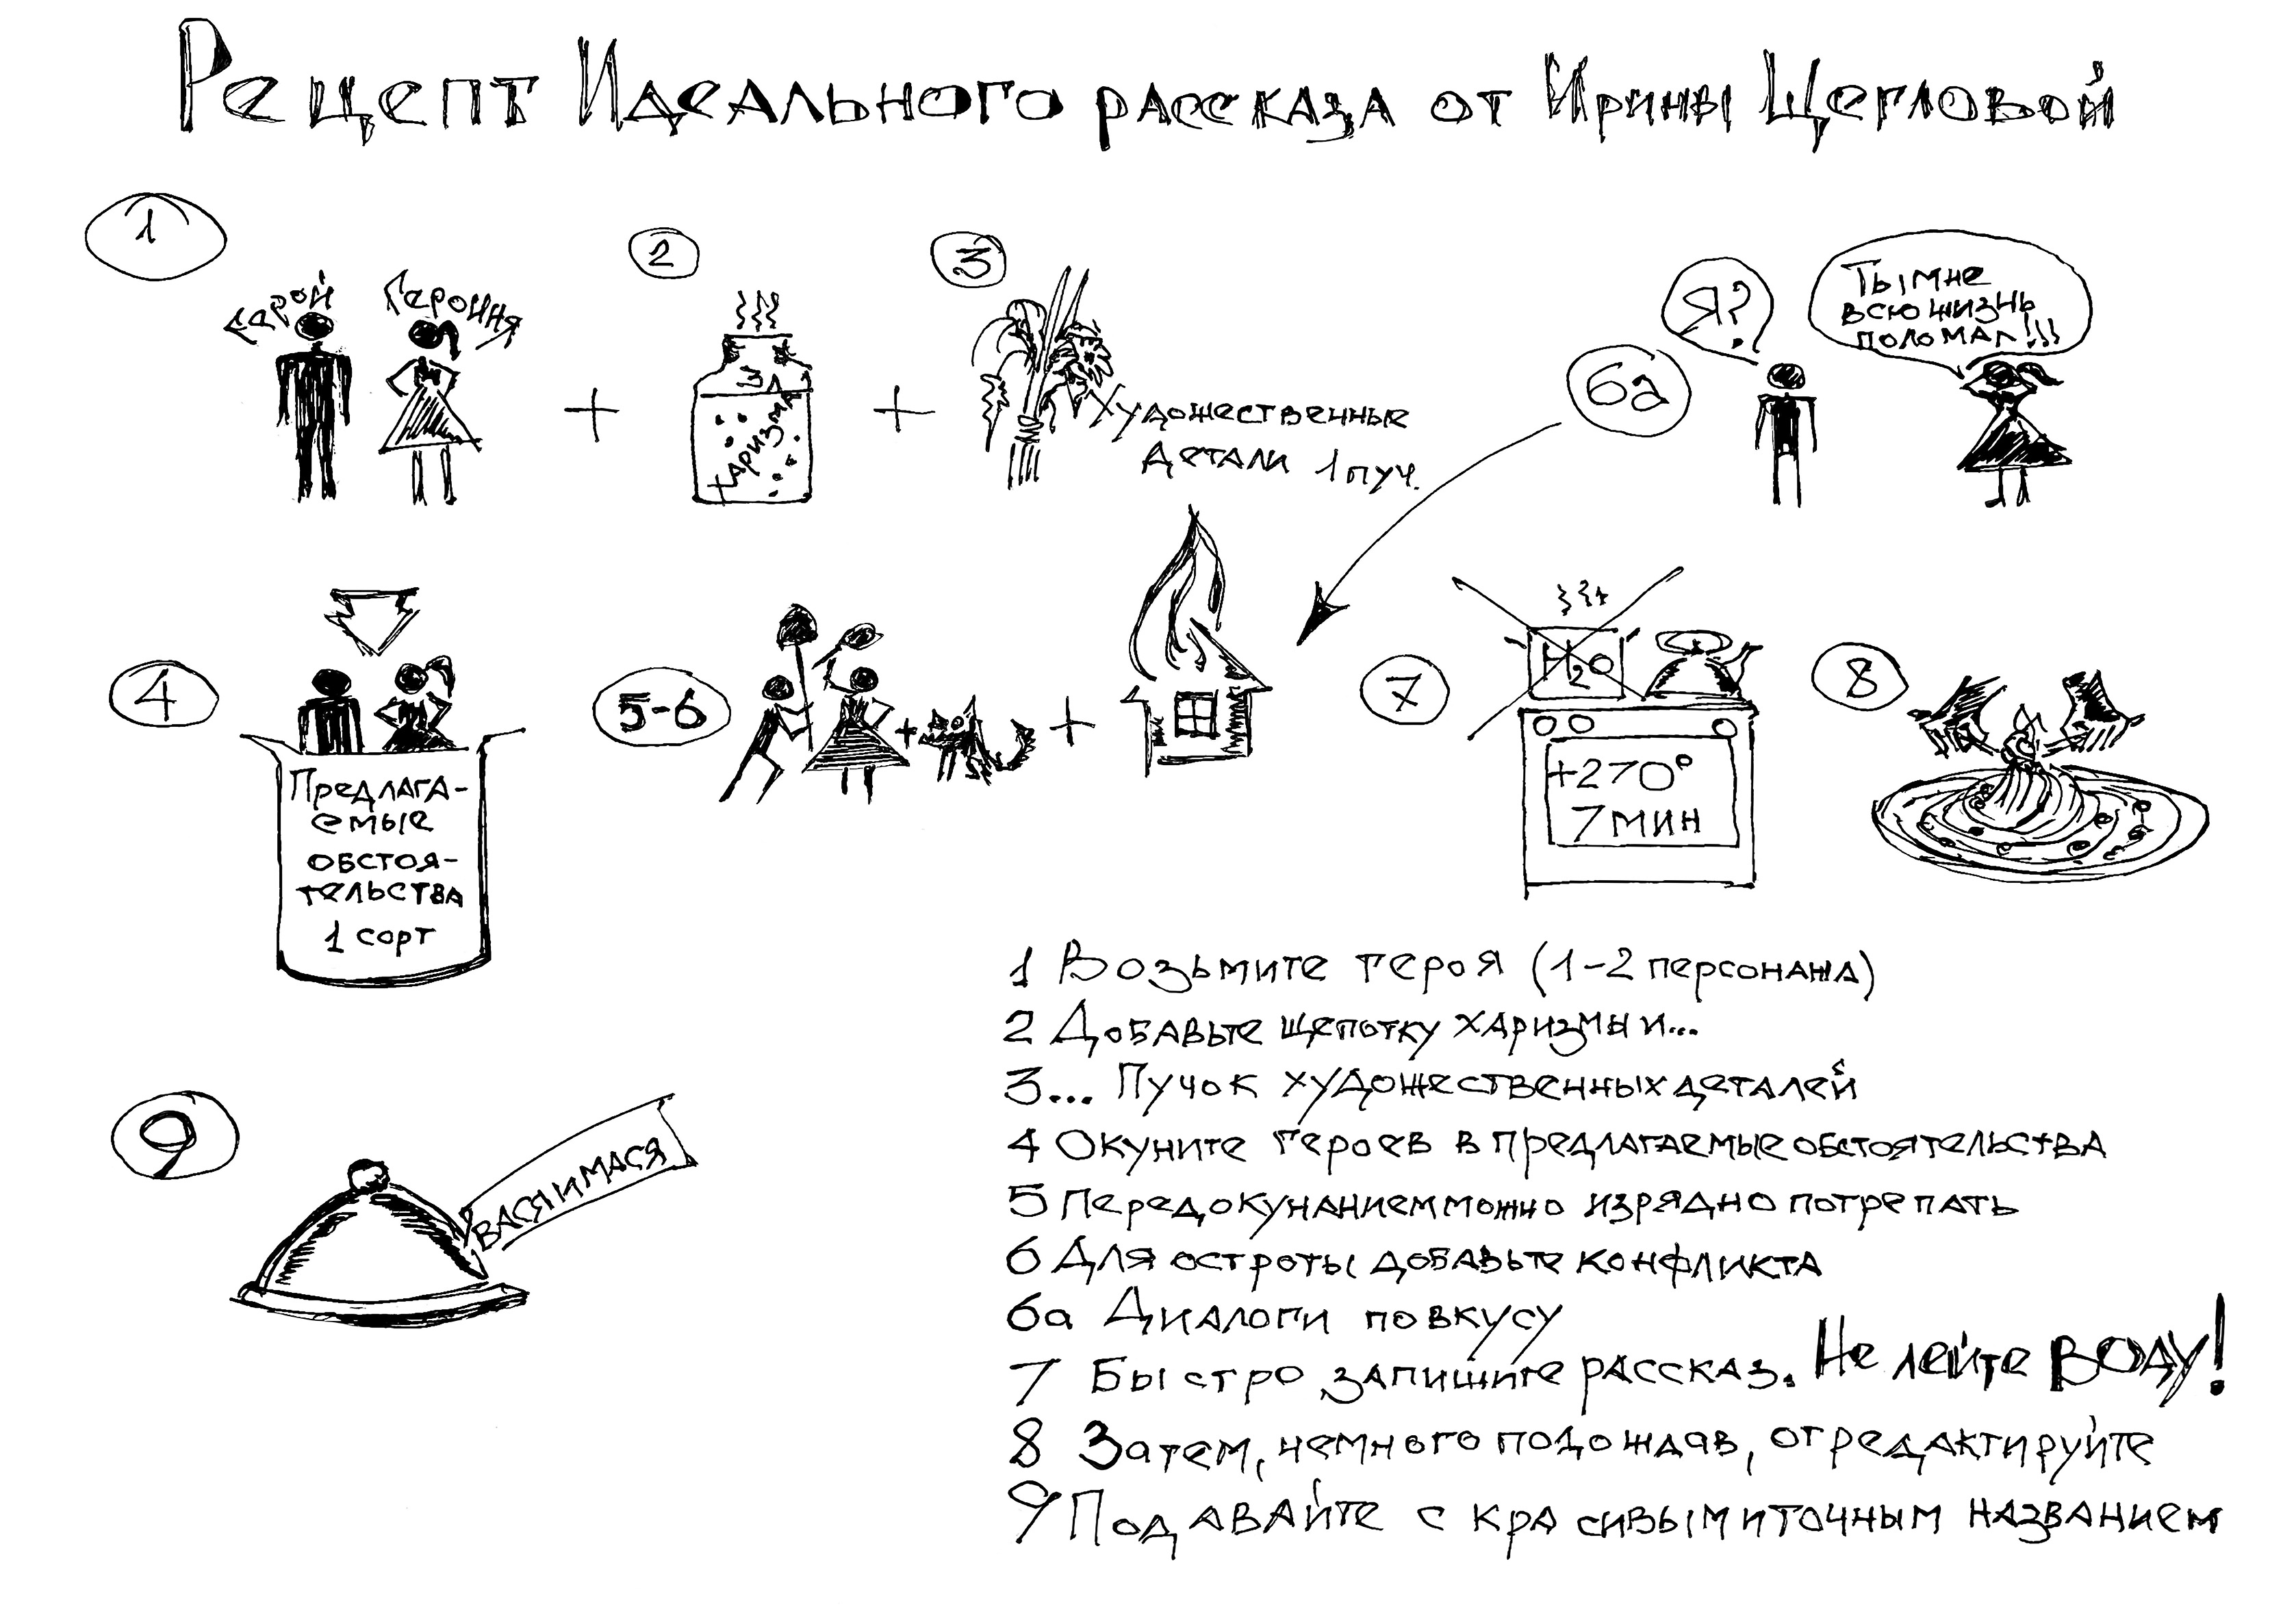 Рецепт Идеального рассказа от Ирины Щегловой
1
Герой
Героиня
+
2
Харизма
+
3
Художественные
детали 1 пуч.
6а
Я?
Ты мне
всю жизнь
поломал!!!
4
Предлага-
емые
обстоя-
тельства
1 сорт
5-6
+
+
7
H2O
+270°
7 мин
8
9
Вася и Мася
1 Возьмите героя (1-2 персонажа)
2 Добавьте щепотку харизмы и...
3... Пучок художественных деталей
4 Окуните героев в предлагаемые обстоятельства
5 Перед окунанием можно изрядно потрепать
6 Для остроты добавьте конфликта
6а Диалоги по вкусу
7 Быстро запишите рассказ. Не лейте воду!
8 Затем, немного подождав, отредактируйте
9 Подавайте с красивым и точным названием